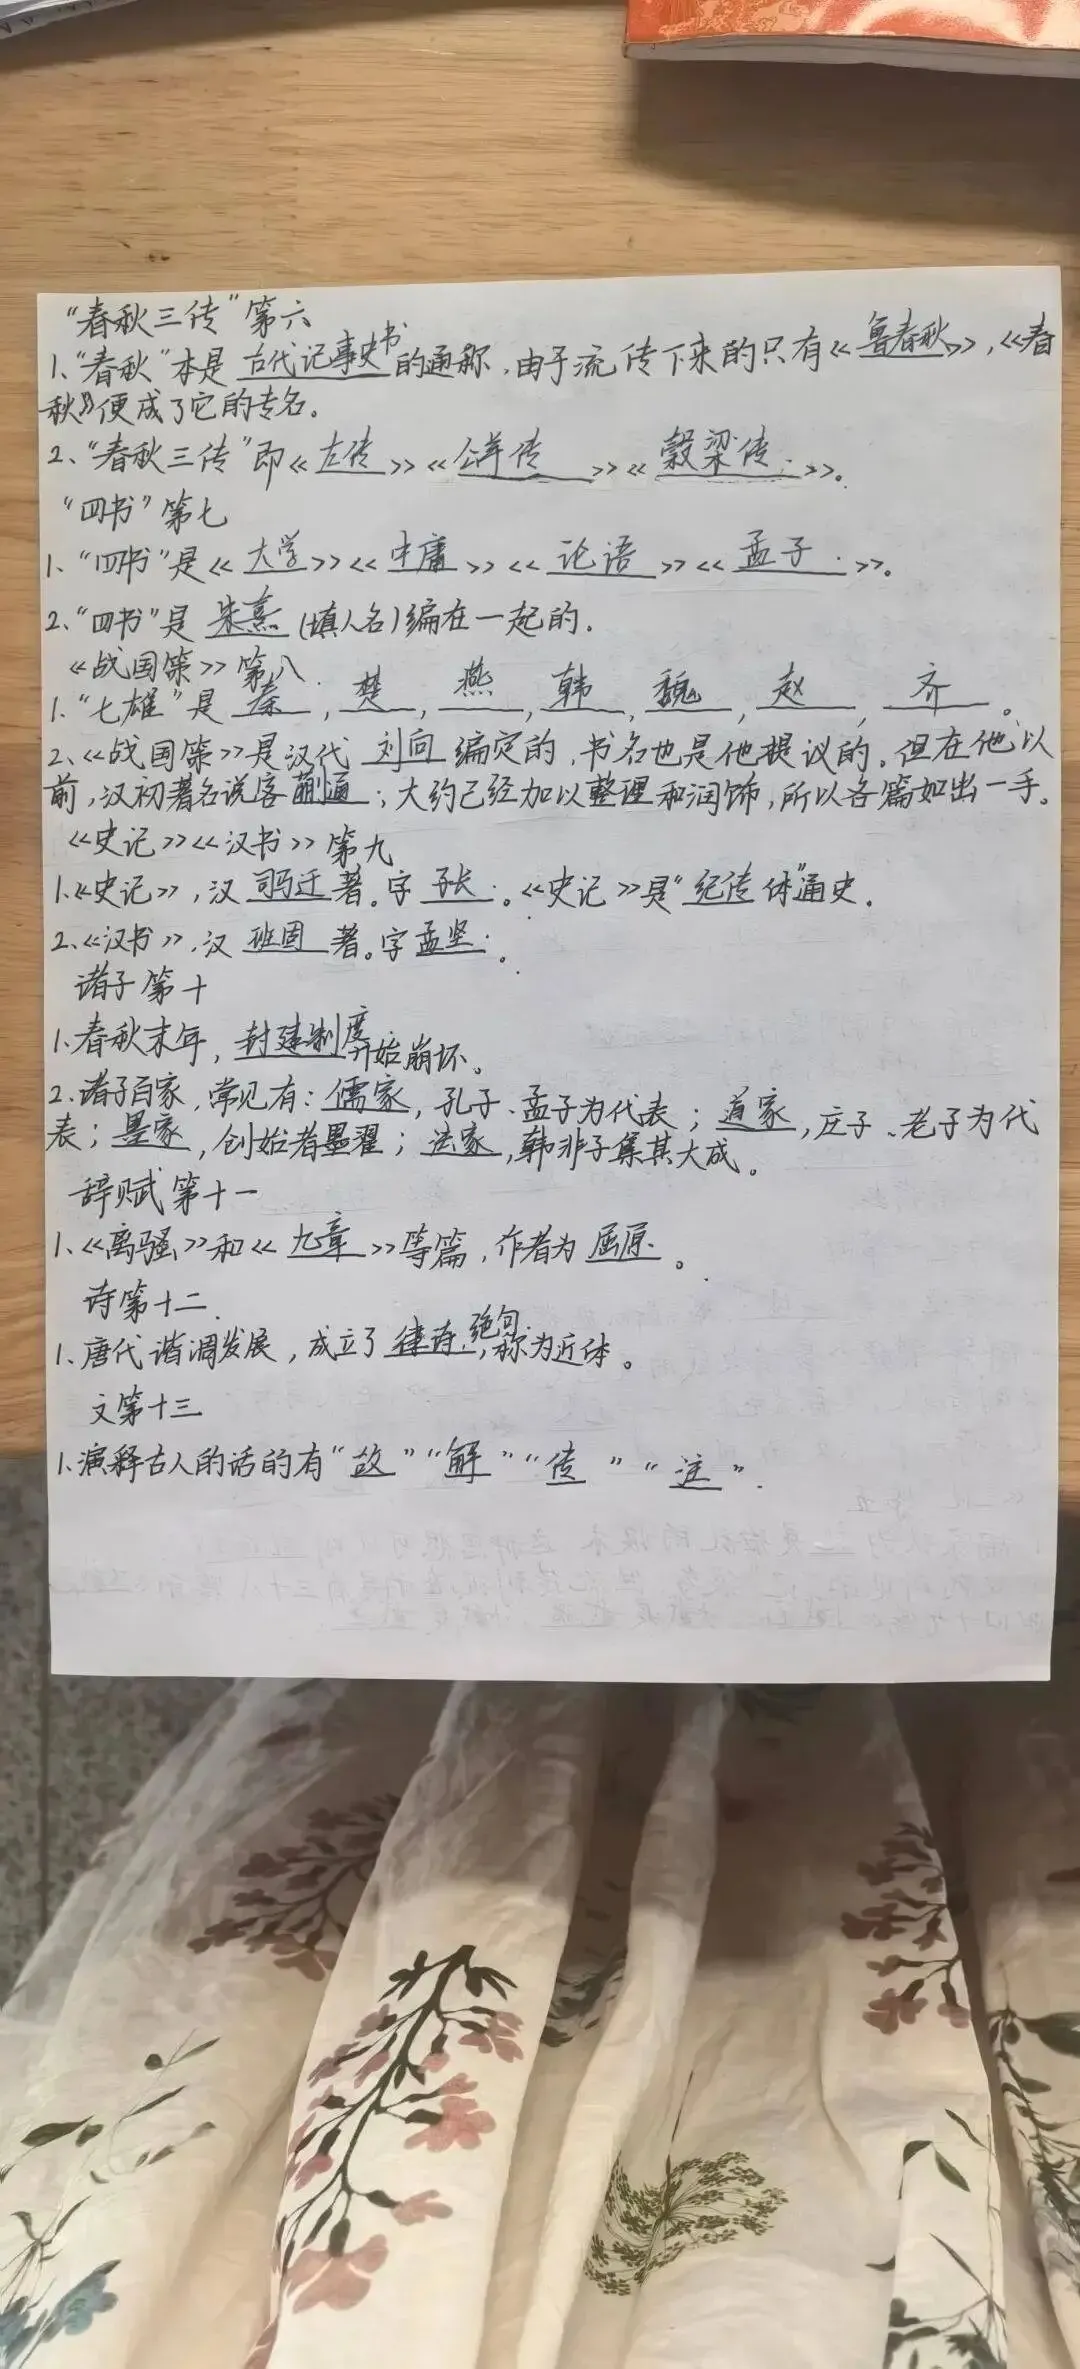 “春秋三传”第六
1、“春秋”本是古代记事史书的通称，由于流传下来的只有《鲁春秋》，《春
秋》便成了它的专名。
2、“春秋三传”即《左传》《公羊传》《穀梁传》。
“四书”第七
1、“四书”是《大学》《中庸》《论语》《孟子》。
2、“四书”是朱熹(填人名)编在一起的.
《战国策》第八
1、“七雄”是秦,楚,燕,韩,魏,赵,齐。
2、《战国策》是汉代刘向编定的,书名也是他提议的。但在他以
前,汉初著名说客蒯通；大约已经加以整理和润饰,所以各篇如出一手。
《史记》《汉书》第九
1、《史记》,汉司马迁著。字子长。《史记》是“纪传体”通史.
2、《汉书》,汉班固著。字孟坚。
诸子第十
1、春秋末年,封建制度开始崩坏。
2、诸子百家,常见有:儒家,孔子、孟子为代表；道家,庄子、老子为代
表；墨家,创始者墨翟；法家,韩非子集其大成。
辞赋第十一
1、《离骚》和《九章》等篇,作者为屈原。
诗第十二
1、唐代谐调发展,成立了律诗.绝句,称为近体。
文第十三
1、演释古人的话的有“故”“解”“传”“注”.